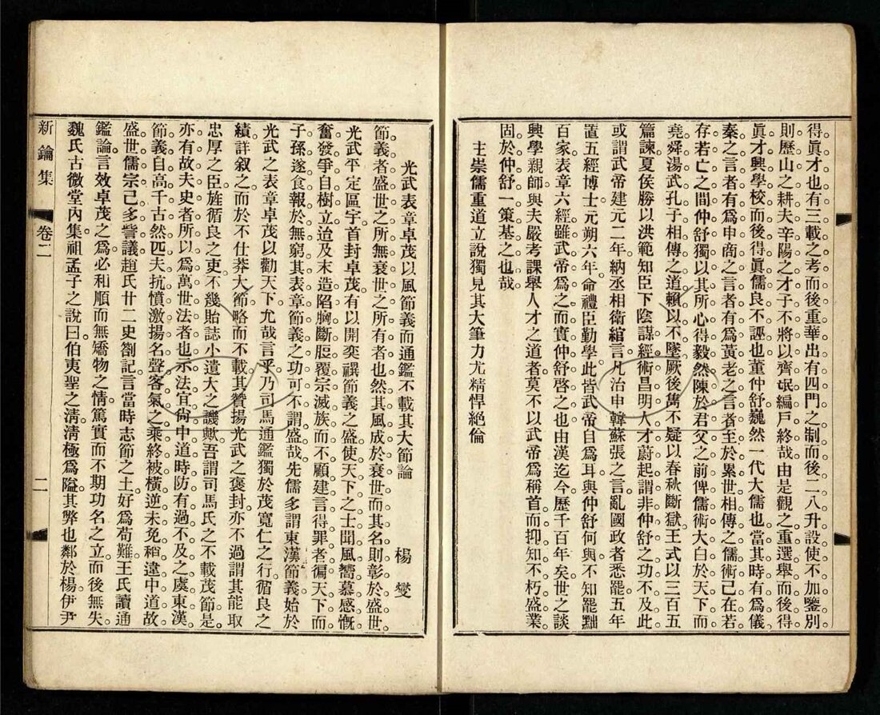 得眞才也有三載之考而後重華出有四門之制而後二八升設使不加鑒別
則歷山之耕夫辛陽之才子不將以齊氓編戶終哉由是觀之重選舉而後得
眞才興學校而後得眞儒良不誣也董仲舒巍然一代大儒也當其時有爲儀
秦之言者有爲申商之言者有爲黃老之言者至於累世相傳之儒術已在若
存若亡之間仲舒獨以其所心得毅然陳於君父之前俾儒術大白於天下而
堯舜湯武孔子相傳之道賴以不墜厥後雋不疑以春秋斷獄王式以三百五
篇諫夏侯勝以洪範知臣下陰謀經術昌明人才蔚起謂非仲舒之功不及此
或謂武帝建元二年納丞相衛綰言凡治申韓蘇張之言亂國政者悉罷五年
置五經博士元朔六年命禮臣勸學此皆武帝自爲耳與仲舒何與不知罷黜
百家表章六經雖武帝爲之而實仲舒啓之也由漢迄今歷千百年矣世之談
興學親師與夫嚴考課舉人才之道者莫不以武帝爲稱首而抑知不朽盛業
固於仲舒一策基之也哉
主崇儒重道立說獨見其大筆力尤精悍絕倫
光武表章卓茂以風節義而通鑑不載其大節論
楊燮
節義者盛世之所無衰世之所有者也然其風成於衰世而其名則彰於盛世
光武平定區宇首封卓茂有以開奕禩節義之盛使天下之士聞風嚮慕感慨
奮發爭自樹立迨及末造陷胸斷脰覆宗滅族而不顧建言得罪者徧天下而
子孫遂食報於無窮其表章節義之功可不謂盛哉先儒多謂東漢節義始於
光武之表章卓茂以勸天下尤哉言乎乃司馬通鑑獨於茂寬仁之行循良之
績詳敘之而於不仕莽大節略而不載其贊揚光武之褒封亦不過謂其能取
忠厚之臣旌循良之吏不幾貽誌小遺大之譏歟吾謂司馬氏之不載茂節是
亦有故夫史者所以爲萬世法者也示法宜尙中道時防有過不及之虞東漢
節義自高千古然匹夫抗憤激揚名聲客氣之乘終被橫逆未免稍違中道故
盛世儒宗已多訾議趙氏廿二史劄記言當時志節之士好爲苟難王氏讀通
鑑論言效卓茂之爲必和順而無矯物之情篤實而不期功名之立而後無失
魏氏古微堂內集祖孟子之說曰伯夷聖之清清極爲隘其弊也鄰於楊伊尹
新論集 卷二 二